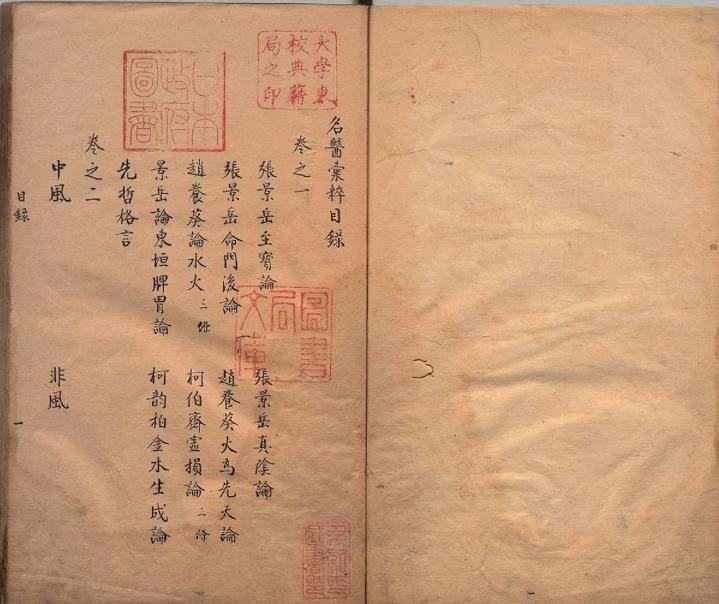 大學東
校典籍
局之印
日本
政府
圖書
名醫彙粹目錄
卷之一
張景岳至寶論 張景岳真陰論
張景岳命門浚論 趙養葵火為先天論
趙養葵論水火三條 柯伯齋虛損論二條
景岳論東垣脾胃論 柯韵柏金水生成論
先哲格言
卷之二
中風 非風
目錄 一
圖書
局
文庫